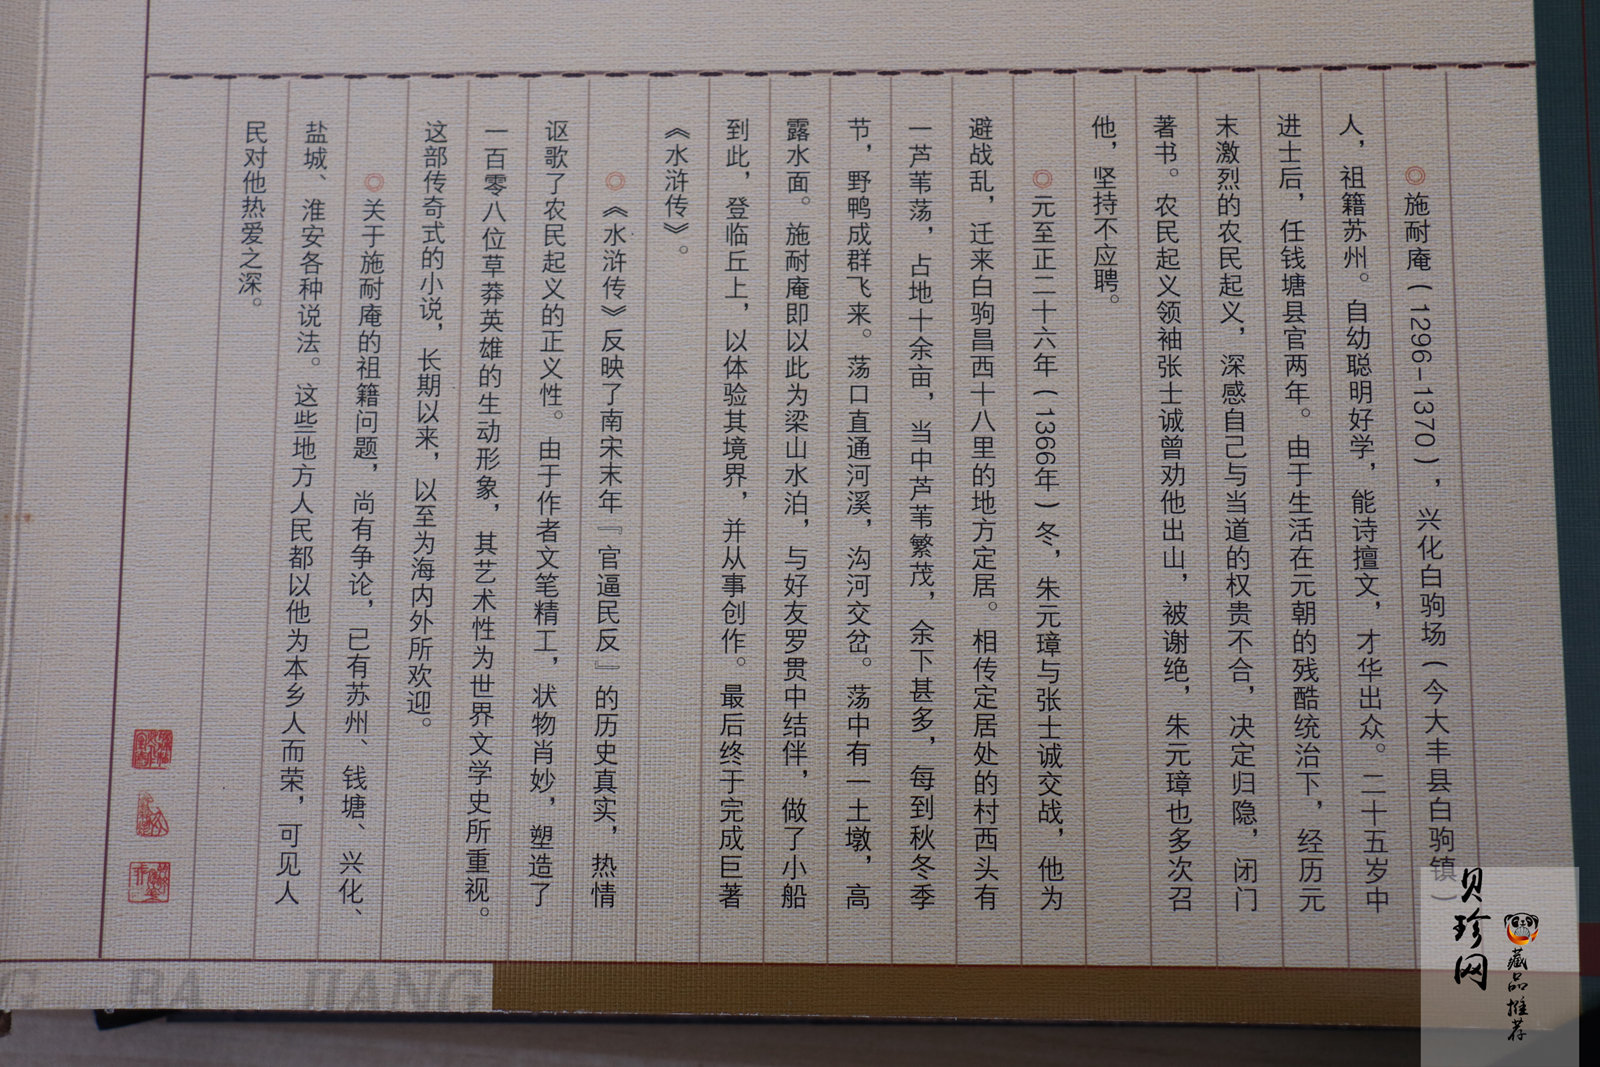 ◎施耐庵(1296-1370)，兴化白驹场(今大丰县白驹镇)
人，祖籍苏州。自幼聪明好学，能诗擅文，才华出众。二十五岁中
进士后，任钱塘县官两年。由于生活在元朝的残酷统治下，经历元
末激烈的农民起义，深感自己与当道的权贵不合，决定归隐，闭门
著书。农民起义领袖张士诚曾劝他出山，被谢绝，朱元璋也多次召
他，坚持不应聘。
◎元至正二十六年(1366年)冬，朱元璋与张士诚交战，他为
避战乱，迁来白驹昌西十八里的地方定居。相传定居处的村西头有
一芦苇荡，占地十余亩，当中芦苇繁茂，余下甚多，每到秋冬季
节，野鸭成群飞来。荡口直通河溪，沟河交岔。荡中有一土墩，高
露水面。施耐庵即以此为梁山水泊，与好友罗贯中结伴，做了小船
到此，登临丘上，以体验其境界，并从事创作。最后终于完成巨著
《水浒传》。
◎《水浒传》反映了南宋末年『官逼民反』的历史真实，热情
讴歌了农民起义的正义性。由于作者文笔精工，状物肖妙，塑造了
一百零八位草莽英雄的生动形象，其艺术性为世界文学史所重视。
这部传奇式的小说，长期以来，以至为海内外所欢迎。
◎关于施耐庵的祖籍问题，尚有争论，已有苏州、钱塘、兴化、
盐城、淮安各种说法。这些地方人民都以他为本乡人而荣，可见人
民对他热爱之深。
G BA JIANG
贝珍网
藏品推荐